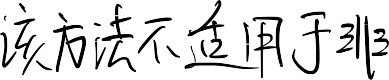 该方法不适用于非